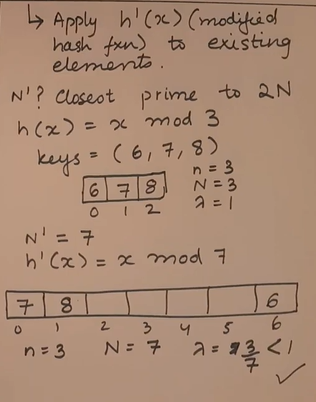 ↳ Apply h'(x) (modified
hash fxn) to existing
elements.
N'? Closest prime to 2N
h(x) = x mod 3
keys = (6, 7, 8)
n = 3
6 7 8
N = 3
0 1 2
λ = 1
N' = 7
h'(x) = x mod 7
7 8 6
0 1 2 3 4 5 6
n = 3 N = 7 λ = 3/7 < 1
✓